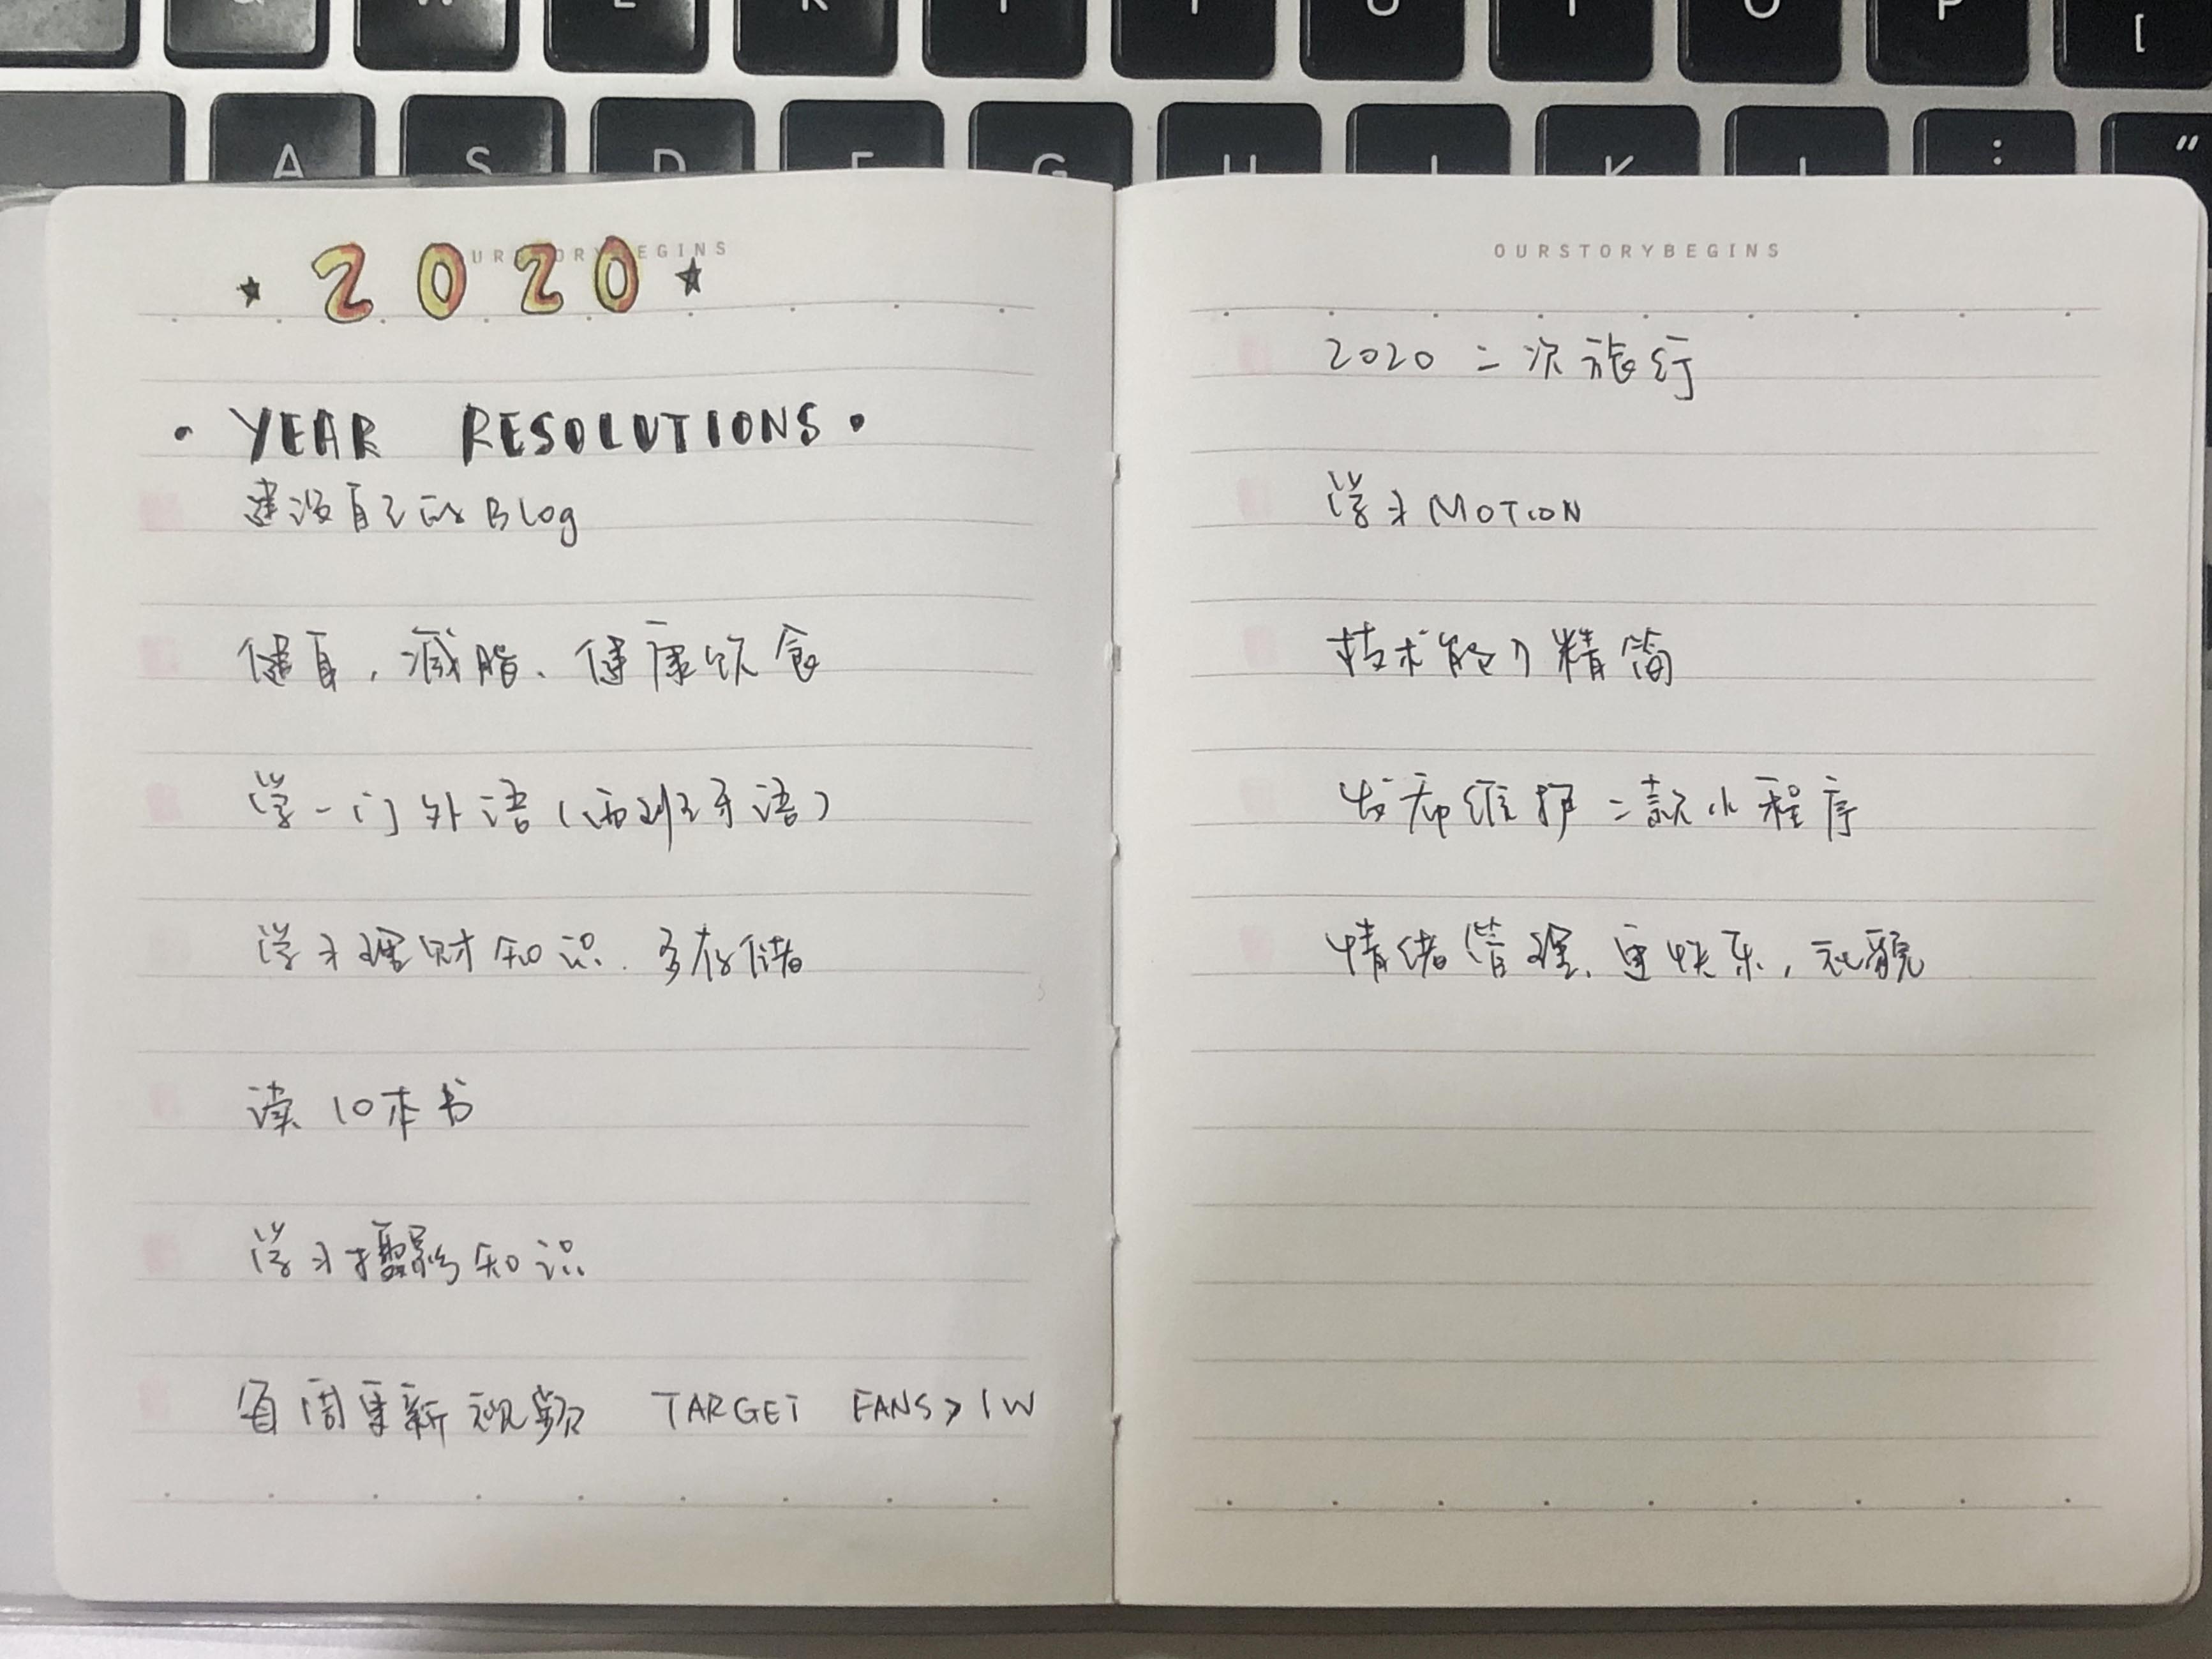 Q W E R T Y U I O P [
A S D F G H J K L : "
2020
OURSTORYBEGINS
YEAR RESOLUTIONS
建设自己的Blog
健身,减脂、健康饮食
学一门外语(西班牙语)
学习理财知识.多存储
读10本书
学习摄影知识
每周更新视频 TARGET FANS>1W
OURSTORYBEGINS
2020 二次旅行
学习MOTION
技术能力精简
发布维护二款小程序
情绪管理、更快乐,礼貌